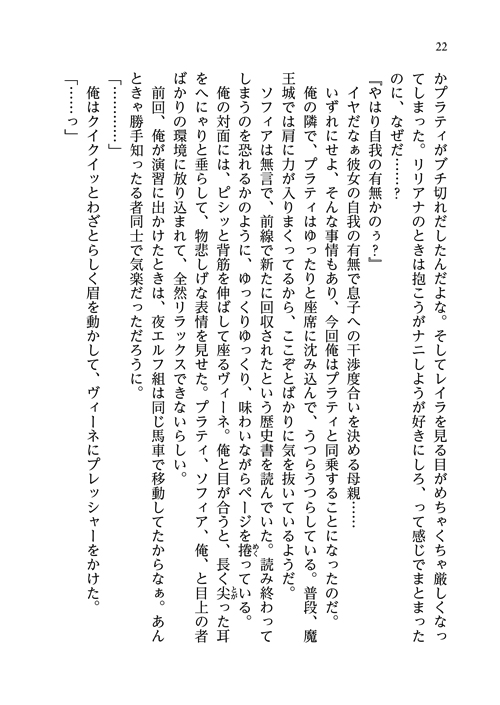 22
かプラティがブチ切れだしたんだよな。そしてレイラを見る目がめちゃくちゃ厳しくなっ
てしまった。リリアナのときは抱こうがナニしようが好きにしろ、って感じでまとまった
のに、なぜだ……？
『やはり自我の有無かのぅ？』
イヤだなぁ彼女の自我の有無で息子への干渉度合いを決める母親……
いずれにせよ、そんな事情もあり、今回俺はプラティと同乗することになったのだ。
俺の隣で、プラティはゆったりと座席に沈み込んで、うつらうつらしている。普段、魔
王城では肩に力が入りまくってるから、ここぞとばかりに気を抜いているようだ。
ソフィアは無言で、前線で新たに回収されたという歴史書を読んでいた。読み終わって
しまうのを恐れるかのように、ゆっくりゆっくり、味わいながらページを捲めくっている。
俺の対面には、ピシッと背筋を伸ばして座るヴィーネ。俺と目が合うと、長く尖とがった耳
をへにゃりと垂らして、物悲しげな表情を見せた。プラティ、ソフィア、俺、と目上の者
ばかりの環境に放り込まれて、全然リラックスできないらしい。
前回、俺が演習に出かけたときは、夜エルフ組は同じ馬車で移動してたからなぁ。あん
ときゃ勝手知ったる者同士で気楽だっただろうに。
「…………」
俺はクイクイッとわざとらしく眉を動かして、ヴィーネにプレッシャーをかけた。
「……っ」